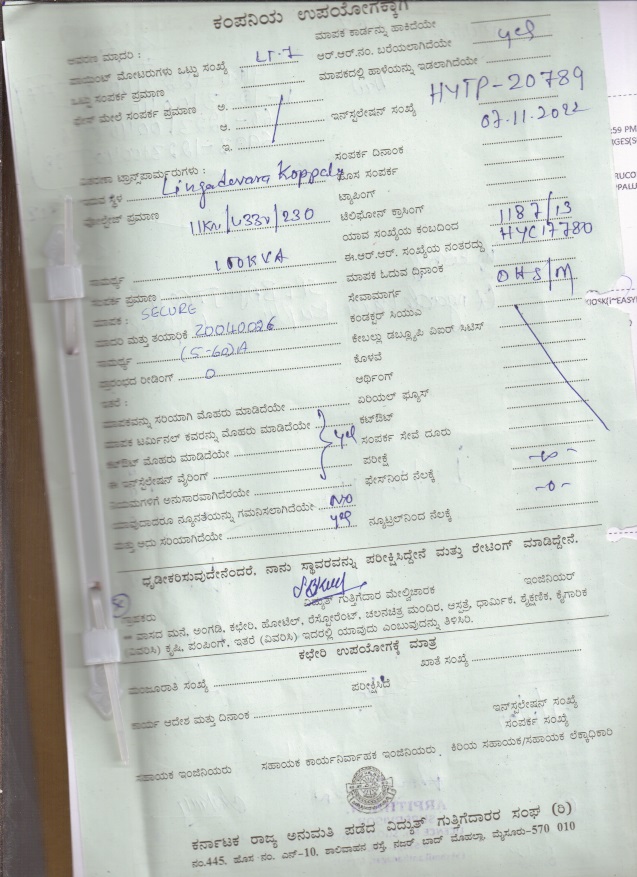 ಕಂಪನಿಯ ಉಪಯೋಗಕ್ಕಾಗಿ
ಮಾಪಕ ಕಾರ್ಡನ್ನು ಹಾಕಿದೆಯೇ
ಮಾದರಿ : LT-7
ಆರ್.ಆರ್.ನಂ. ಬರೆಯಲಾಗಿದೆಯೇ yes
ಪಾಯಿಂಟ್ ಮೋಟರುಗಳು ಒಟ್ಟು ಸಂಖ್ಯೆ
ಮಾಪಕದಲ್ಲಿ ಹಾಳೆಯನ್ನು ಇಡಲಾಗಿದೆಯೇ
ಒಟ್ಟು ಸಂಪರ್ಕ ಪ್ರಮಾಣ
HYTP-20789
ಫೇಸ್ ಮೇಲೆ ಸಂಪರ್ಕ ಪ್ರಮಾಣ ಅ.
ಇನ್‌ಸ್ಟಲೇಷನ್ ಸಂಖ್ಯೆ
ಆ.
07.11.2022
ಇ.
ಸಂಪರ್ಕ ದಿನಾಂಕ
ಟ್ರಾನ್ಸ್‌ಫಾರ್ಮರುಗಳು :
ಹೊಸ ಸಂಪರ್ಕ
ಸ್ಥಳ Lingadevara Koppalu
ಟ್ಯಾಪಿಂಗ್
ವೋಲ್ಟೇಜ್ ಪ್ರಮಾಣ 11Kv/433v/230
ಟೆಲಿಫೋನ್ ಕ್ರಾಸಿಂಗ್
ಯಾವ ಸಂಖ್ಯೆಯ ಕಂಬದಿಂದ 1187/13
ಸಾಮರ್ಥ್ಯ 100KVA
ಈ.ಆರ್.ಆರ್. ಸಂಖ್ಯೆಯ ನಂತರದ್ದು HYC17780
ಸಂಪರ್ಕ ಪ್ರಮಾಣ
ಮಾಪಕ ಓದುವ ದಿನಾಂಕ
ಮಾಪಕ : SECURE
ಸೇವಾಮಾರ್ಗ OHS/M
ಮಾದರಿ ಮತ್ತು ತಯಾರಿಕೆ 20040026
ಕಂಡಕ್ಟರ್ ಸಿಯುಎ
ಸಾಮರ್ಥ್ಯ (5-60)A
ಕೇಬಲ್ಲು ಡಬ್ಲ್ಯೂಪಿ ವಿಐಆರ್ ಸಿಟಿಸ್
ಪ್ರಾರಂಭದ ರೀಡಿಂಗ್ 0
ಕೊಳವೆ
ಇತರೆ :
ಅರ್ಥಿಂಗ್
ಮಾಪಕವನ್ನು ಸರಿಯಾಗಿ ಮೊಹರು ಮಾಡಿದೆಯೇ
ಏರಿಯಲ್ ಫ್ಯೂಸ್
ಮಾಪಕ ಟರ್ಮಿನಲ್ ಕವರನ್ನು ಮೊಹರು ಮಾಡಿದೆಯೇ yes
ಕಟ್‌ಔಟ್
ಕಟ್‌ಔಟ್ ಮೊಹರು ಮಾಡಿದೆಯೇ
ಸಂಪರ್ಕ ಸೇವೆ ದೂರು
ಈ ಇನ್‌ಸ್ಟಲೇಷನ್ ವೈರಿಂಗ್
ಪರೀಕ್ಷೆ
ನಿಯಮಗಳಿಗೆ ಅನುಸಾರವಾಗಿದೆಯೇ
ಫೇಸ್‌ನಿಂದ ನೆಲಕ್ಕೆ -∞-
ಯಾವುದಾದರೂ ನ್ಯೂನತೆಯನ್ನು ಗಮನಿಸಲಾಗಿದೆಯೇ No
-0-
ಮತ್ತು ಅದು ಸರಿಯಾಗಿದೆಯೇ yes
ನ್ಯೂಟ್ರಲ್‌ನಿಂದ ನೆಲಕ್ಕೆ
ಧೃಡೀಕರಿಸುವುದೇನೆಂದರೆ, ನಾನು ಸ್ಥಾವರವನ್ನು ಪರೀಕ್ಷಿಸಿದ್ದೇನೆ ಮತ್ತು ರೇಟಿಂಗ್ ಮಾಡಿದ್ದೇನೆ.
ಗ್ರಾಹಕರು
ವಿದ್ಯುತ್ ಗುತ್ತಿಗೆದಾರ ಮೇಲ್ವಿಚಾರಕ
ಇಂಜಿನಿಯರ್
= ವಾಸದ ಮನೆ, ಅಂಗಡಿ, ಕಛೇರಿ, ಹೋಟೆಲ್, ರೆಸ್ಟೋರೆಂಟ್, ಚಲನಚಿತ್ರ ಮಂದಿರ, ಆಸ್ಪತ್ರೆ, ಧಾರ್ಮಿಕ, ಶೈಕ್ಷಣಿಕ, ಕೈಗಾರಿಕ
(ವಿವರಿಸಿ) ಕೃಷಿ, ಪಂಪಿಂಗ್, ಇತರೆ (ವಿವರಿಸಿ) ಇದರಲ್ಲಿ ಯಾವುದು ಎಂಬುವುದನ್ನು ತಿಳಿಸಿರಿ.
ಕಛೇರಿ ಉಪಯೋಗಕ್ಕೆ ಮಾತ್ರ
ಮಂಜೂರಾತಿ ಸಂಖ್ಯೆ
ಖಾತೆ ಸಂಖ್ಯೆ
ಪರೀಕ್ಷಿಸಿದೆ
ಕಾರ್ಯ ಆದೇಶ ಮತ್ತು ದಿನಾಂಕ
ಇನ್‌ಸ್ಟಲೇಷನ್ ಸಂಖ್ಯೆ
ಸಂಪರ್ಕ ಸಂಖ್ಯೆ
ಸಹಾಯಕ ಇಂಜಿನಿಯರು
ಸಹಾಯಕ ಕಾರ್ಯನಿರ್ವಾಹಕ ಇಂಜಿನಿಯರು
ಕಿರಿಯ ಸಹಾಯಕ/ಸಹಾಯಕ ಲೆಕ್ಕಾಧಿಕಾರಿ
ಕರ್ನಾಟಕ ರಾಜ್ಯ ಅನುಮತಿ ಪಡೆದ ವಿದ್ಯುತ್ ಗುತ್ತಿಗೆದಾರರ ಸಂಘ (ರಿ)
ನಂ.445, ಹೊಸ ನಂ. ಎನ್-10, ಶಾಲಿವಾಹನ ರಸ್ತೆ, ನಜರ್ ಬಾದ್ ಮೊಹಲ್ಲಾ, ಮೈಸೂರು-570 010